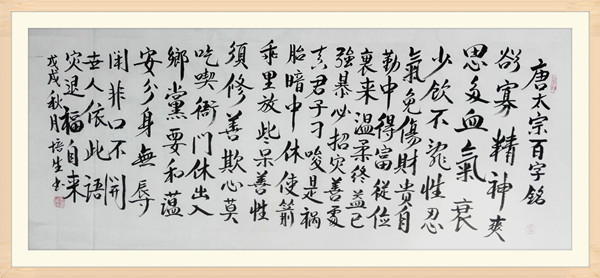 唐太宗百字銘
欲寡精神爽
思多血氣衰
少飲不亂性忍
氣免傷財貴自
勤中得富從儉
裏来温柔終益己
強暴必招灾善處
真君子刁唆是禍
胎暗中休使箭
乖里放此呆善性
須修善欺心莫
吃喫衙門休出入
鄉黨要和藴
安分身無辱
閑非口不開
世人依此語
灾退福自来
戊戌秋月培生书